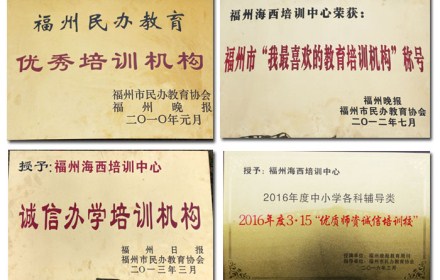 福州民办教育
优秀培训机构
福州市民办教育协会
福州晚报
二〇一〇年元月
福州海西培训中心荣获：
福州市“我最喜欢的教育培训机构”称号
福州晚报
福州市民办教育协会
二〇一二年七月
授予：福州海西培训中心
诚信办学培训机构
福州日报
福州市民办教育协会
二〇一三年三月
授予：福州海西培训中心
2016年度中小学各科辅导类
2016年度3·15“优质师资诚信培训校”
福州市民办教育协会